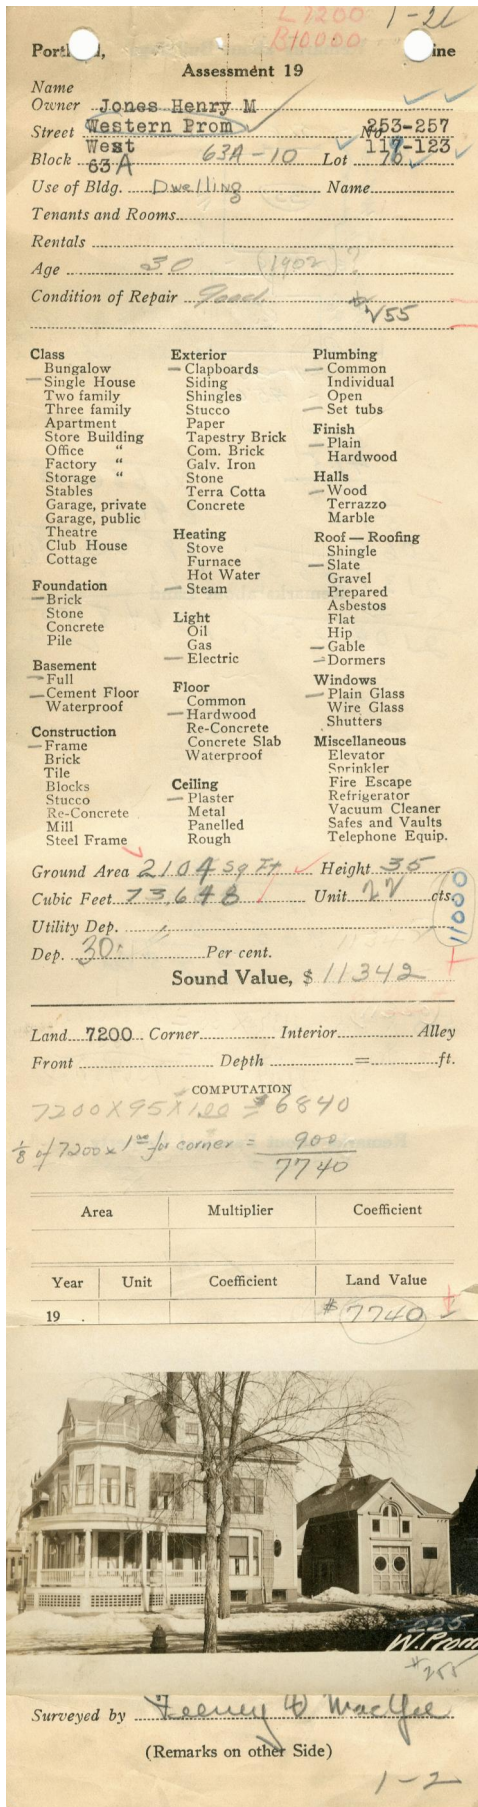 L7200
B10000
1-2
Portland, ine
Assessment 19
Name
Owner Jones Henry M
Street Western Prom No 253-257
West 117-123
Block 63A 63A-10 Lot 10
Use of Bldg. Dwelling Name
Tenants and Rooms
Rentals
Age 30 (1902)?
Condition of Repair Good
55
Class
Bungalow
Single House
Two family
Three family
Apartment
Store Building
Office "
Factory "
Storage "
Stables
Garage, private
Garage, public
Theatre
Club House
Cottage
Foundation
Brick
Stone
Concrete
Pile
Basement
Full
Cement Floor
Waterproof
Construction
Frame
Brick
Tile
Blocks
Stucco
Re-Concrete
Mill
Steel Frame
Exterior
Clapboards
Siding
Shingles
Stucco
Paper
Tapestry Brick
Com. Brick
Galv. Iron
Stone
Terra Cotta
Concrete
Heating
Stove
Furnace
Hot Water
Steam
Light
Oil
Gas
Electric
Floor
Common
Hardwood
Re-Concrete
Concrete Slab
Waterproof
Ceiling
Plaster
Metal
Panelled
Rough
Plumbing
Common
Individual
Open
Set tubs
Finish
Plain
Hardwood
Halls
Wood
Terrazzo
Marble
Roof — Roofing
Shingle
Slate
Gravel
Prepared
Asbestos
Flat
Hip
Gable
Dormers
Windows
Plain Glass
Wire Glass
Shutters
Miscellaneous
Elevator
Sprinkler
Fire Escape
Refrigerator
Vacuum Cleaner
Safes and Vaults
Telephone Equip.
Ground Area 2104 Sq Ft Height 35
Cubic Feet 73,648 Unit 22 cts.
11000
Utility Dep.
Dep. 30 Per cent.
Sound Value, $ 11342
Land 7200 Corner Interior Alley
Front Depth = ft.
COMPUTATION
7200X95X1.00 = $6840
1/8 of 7200 x 1.00 for corner = 900
7740
Area Multiplier Coefficient
Year Unit Coefficient Land Value
19 . $7740
225
W. Prom
#255
Surveyed by Feeney & MacGee
(Remarks on other Side)
1-2